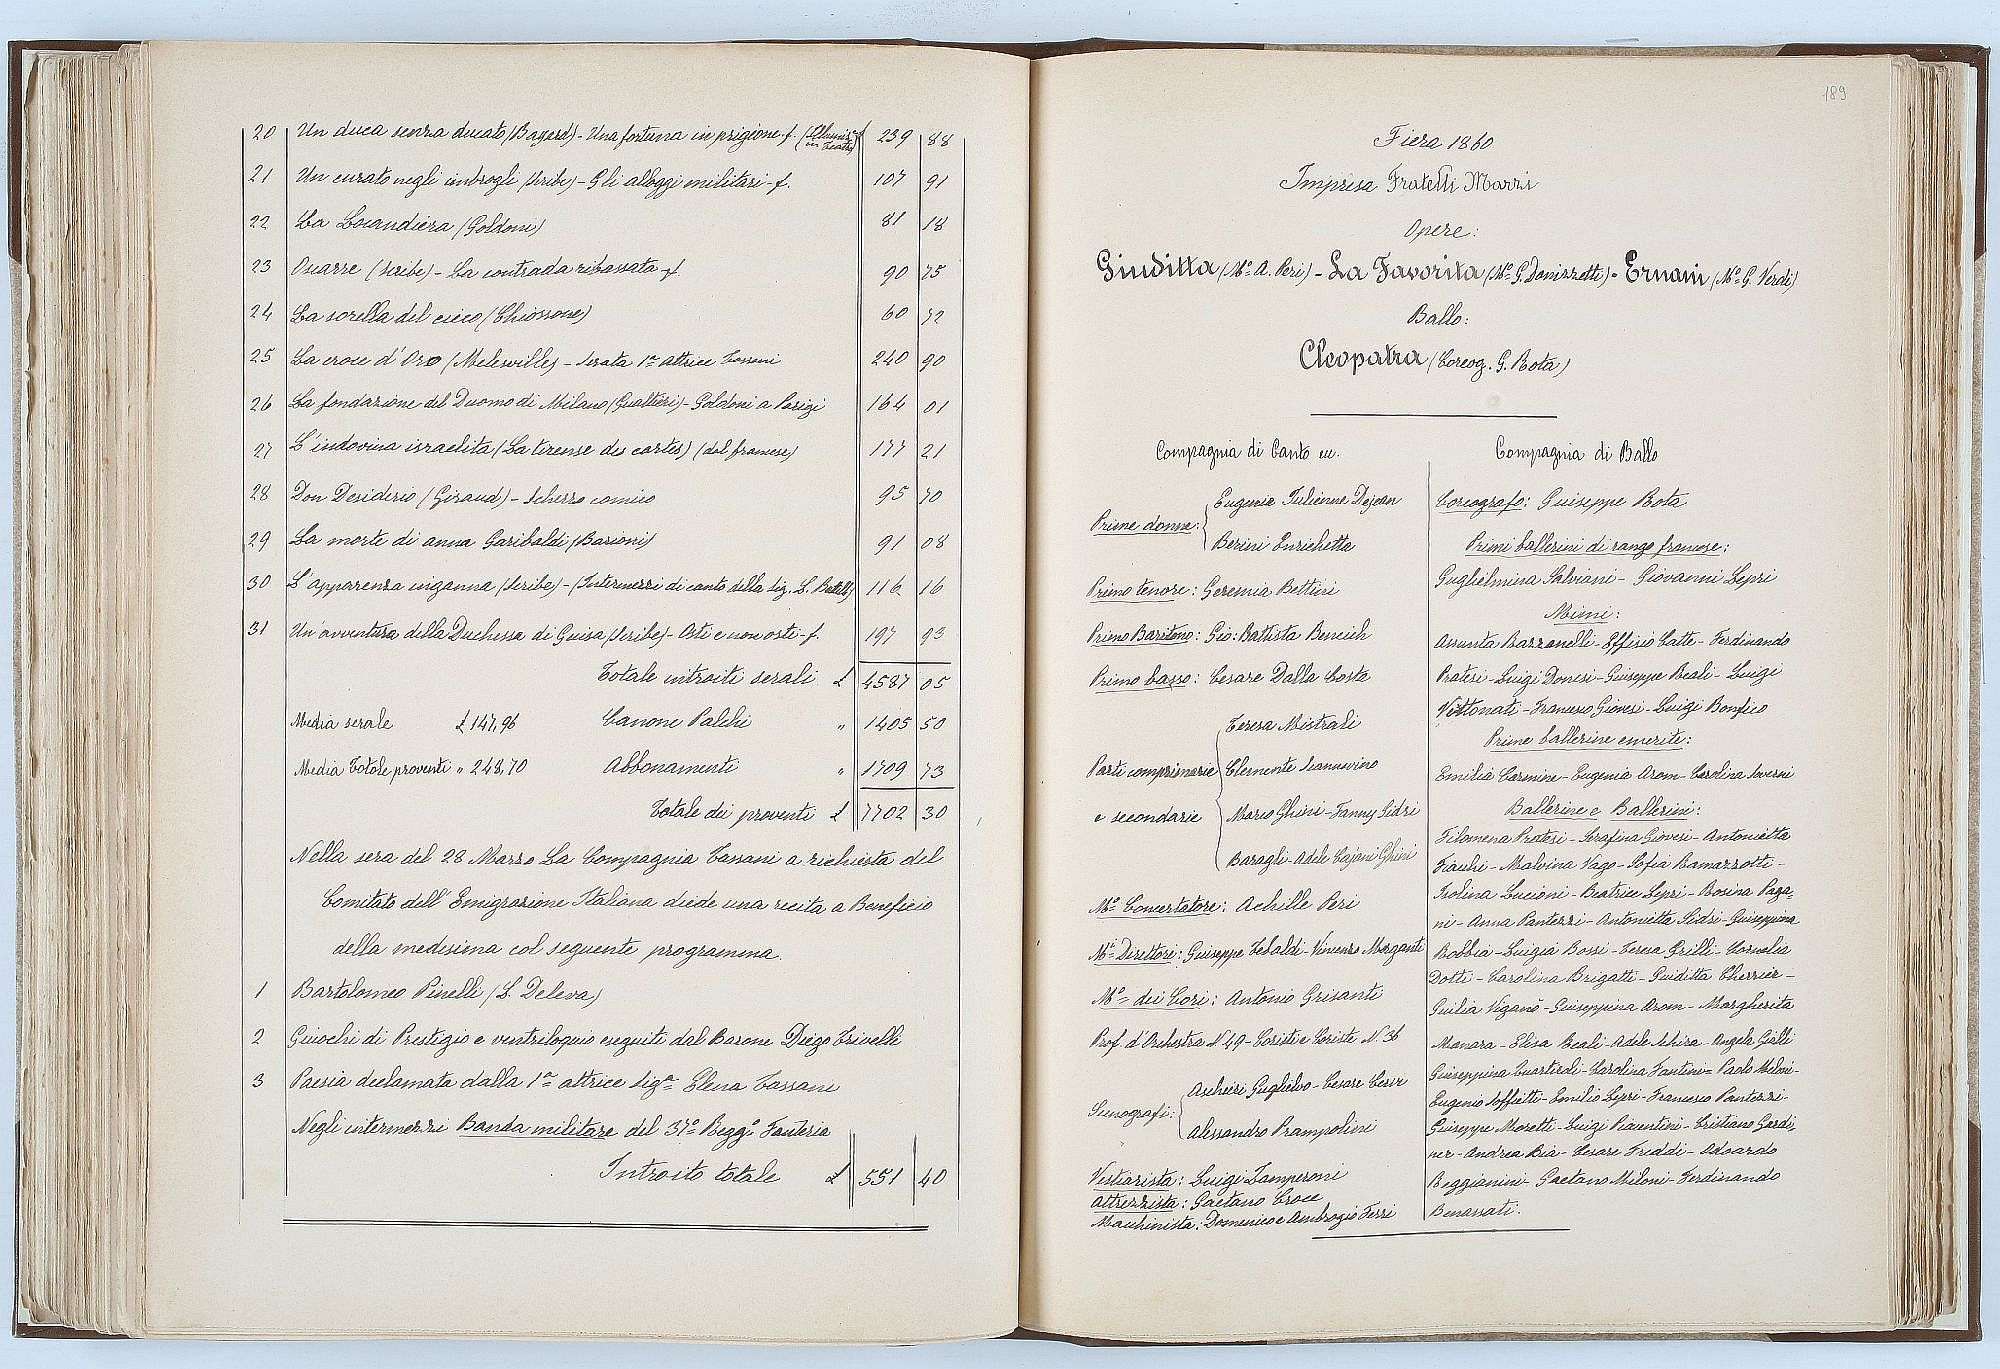 20 Un duca senza ducato (Bayard) - Una fortuna in prigione - f. 239 88
21 Un curato negli imbrogli (Scribe) - Gli alloggi militari - f. 107 91
22 La Locandiera (Goldoni) 81 18
23 Oscarre (Scribe) - La contrada ribassata - f. 90 75
24 La sorella del cieco (Chiossone) 60 72
25 La croce d'Oro (Meleswille) - Serata 1ª attrice Tassani 240 90
26 La fondazione del Duomo di Milano (Gualtieri) - Goldoni a Parigi 164 01
27 L'indovina israelita (La tireuse des cartes) (dal francese) 177 21
28 Don Desiderio (Giraud) - Scherzo comico 95 70
29 La morte di Anna Garibaldi (Barioni) 91 08
30 L'apparenza inganna (Scribe) - (Intermezzi di canto della Sig. L. 116 16
31 Un'avventura della Duchessa di Guisa (Scribe) - Osti e non osti - f. 197 93
Totale introiti serali £ 4587 05
Media serale £ 147,96 Canone Palchi " 1405 50
Media Totale proventi " 248,70 Abbonamenti " 1709 73
Totale dei proventi £ 7702 30
Nella sera del 28 Marzo La Compagnia Tassani a richiesta del
Comitato dell'Emigrazione Italiana diede una recita a Beneficio
della medesima col seguente programma.
1 Bartolomeo Pinelli (L. Deleva)
2 Giuochi di Prestigio e ventriloquio eseguiti dal Barone Diego Trivelli
3 Poesia declamata dalla 1ª attrice Sigª Elena Tassani
Negli intermezzi Banda militare del 37º Reggº Fanteria
Introito totale £ 551 40
189
Fiera 1860
Impresa Fratelli Marzi
Opere:
Giuditta (Mº A. Peri) - La Favorita (Mº G. Donizzetti) - Ernani (Mº G. Verdi)
Ballo:
Cleopatra (Coreog. G. Rota)
Compagnia di Canto ecc.
Prime donne: Eugenia Julienne Dejean
Berini Enrichetta
Primo tenore: Geremia Bettini
Primo Baritono: Gio: Battista Bencich
Primo basso: Cesare Dalla Costa
Parti comprimarie e secondarie
Teresa Mistrali
Clemente Scannavino
Mario Ghini - Fanny Sidri
Baragli - Adele Cajani Ghini
Mº Concertatore: Achille Peri
Mⁱ Direttore: Giuseppe Tebaldi - Vincenzo Morganti
Mº dei Cori: Antonio Grisanti
Prof. d'Orchestra N. 49 - Coristi e Coriste N. 36
Scenografi: Ascheri Guglielmo - Cesare
Alessandro Prampolini
Vestiarista: Luigi Zamperoni
Attrezzista: Gaetano Croce
Macchinista: Domenico e Ambrogio Ferri
Compagnia di Ballo
Coreografo: Giuseppe Rota
Primi ballerini di rango francese:
Guglielmina Salviani - Giovanni Lepri
Mimi:
Assunta Razzanelli - Effisio Catte - Ferdinando
Pratesi - Luigi Donesi - Giuseppe Beali - Luigi
Vittonati - Francesco Giovesi - Luigi Bonfico
Prime ballerine emerite:
Emilia Carmine - Eugenia Arom - Carolina Soverni
Ballerine e Ballerini:
Filomena Pratesi - Serafina Giovesi - Antonietta
Fiachi - Malvina Vago - Sofia Ramazzotti -
Isolina Lucioni - Beatrice Lepri - Rosina Paga-
ni - Anna Panterzi - Antonietta Sidri - Giuseppina
Robbia - Luigia Bossi - Teresa Grilli - Cornelia
Dotti - Carolina Brigatti - Giuditta Cherrier -
Giulia Viganò - Giuseppina Arom - Margherita
Manara - Elisa Beali - Adele Schira - Angela Gialli
Giuseppina Cuartirdi - Carolina Fantini - Paolo Meloni -
Eugenio Soffietti - Emilio Lepri - Francesco Panterzi -
Giuseppe Moretti - Luigi Piacentini - Cristiano Gardi-
ner - Andrea Bia - Cesare Freddi - Odoardo
Reggianini - Gaetano Meloni - Ferdinando
Benassati.